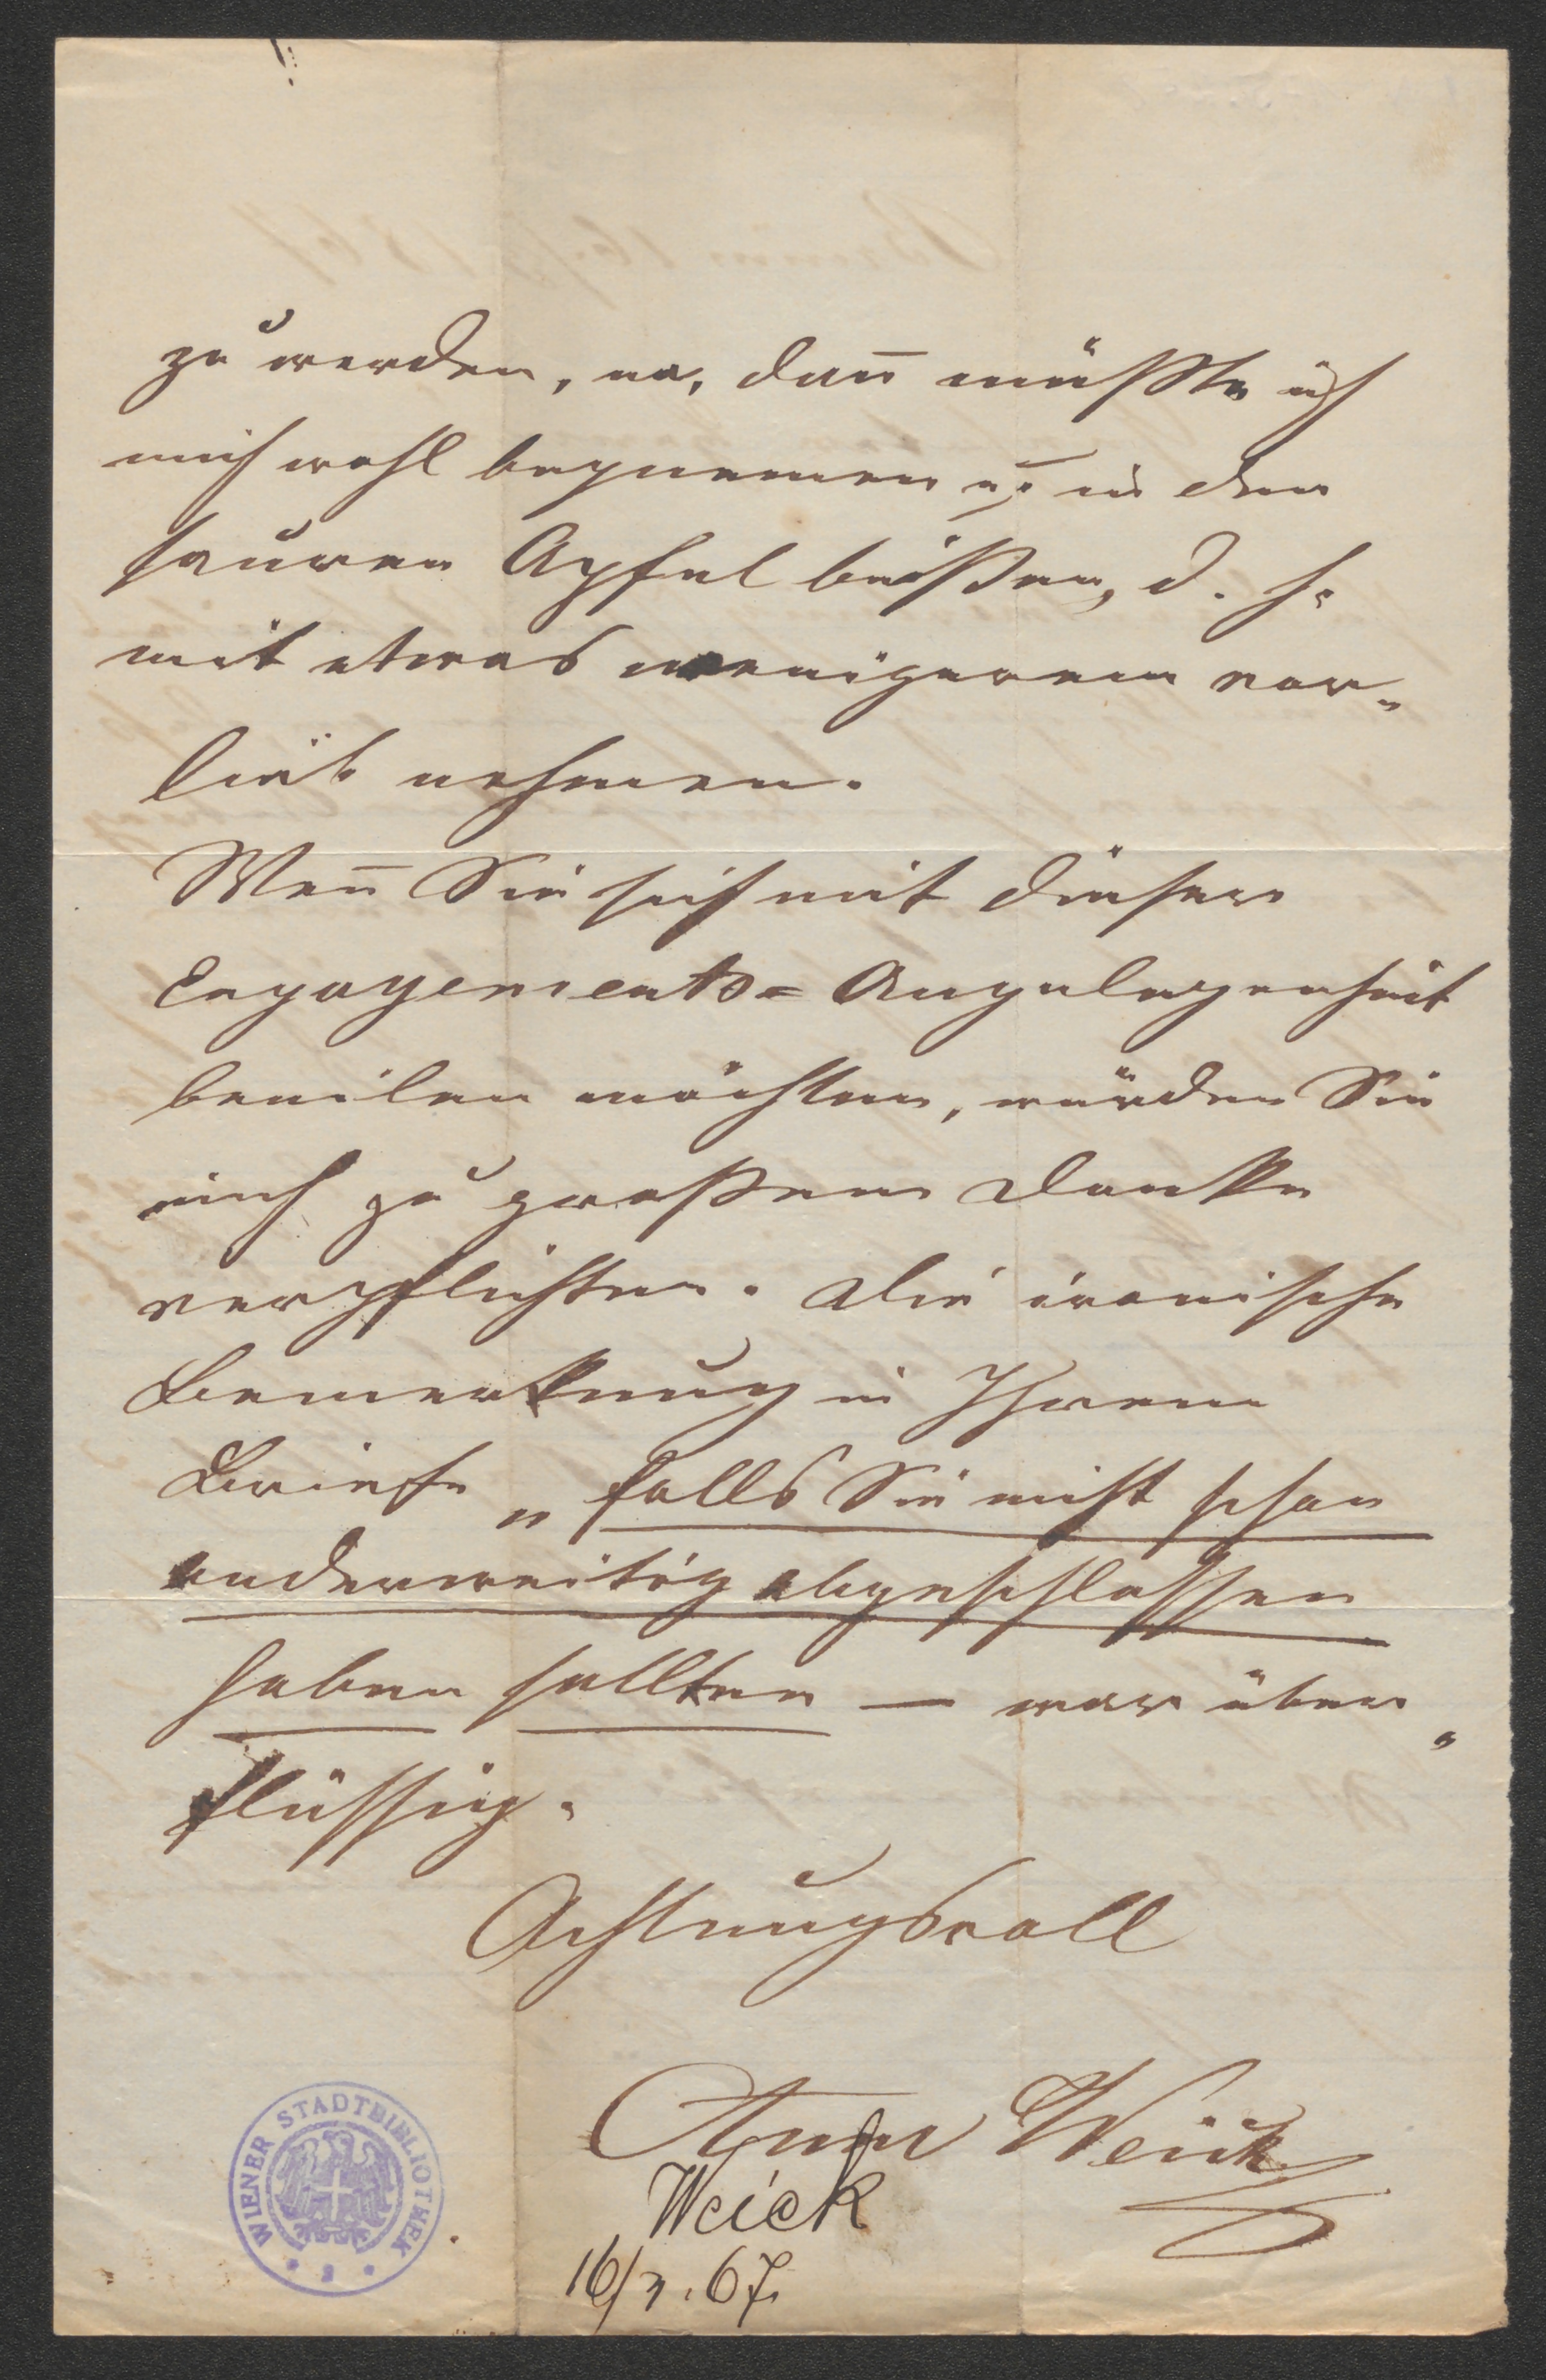 zu werden, na, dan̄ müßte ich
mich wohl bequemen u. in den
sauren Apfel beißen, d. h.
mit etwas wenigerem vor-
lieb nehmen.
Wen̄ Sie sich mit dieser
Engagements= Angelegenheit
beeilen möchten, würden Sie
mich zu großem Danke
verpflichten. Die ironische
Bemerkung in Ihrem
Briefe „falls Sie nicht schon
anderweitig abgeschlossen
haben sollten — war über-
flüssig.
Achtungsvoll
Anna Weick
Weick
16/3. 67.
WIENER STADTBIBLIOTHEK